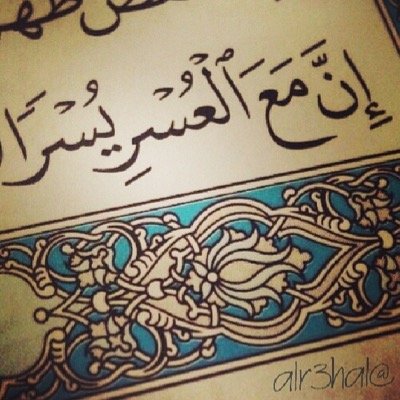 ظهر
إِنَّ مَعَ ٱلْعُسْرِ يُسْرًا
alr3hal@